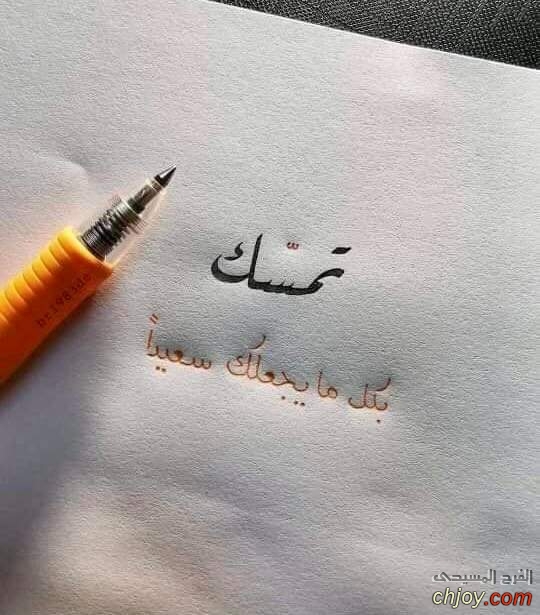 تمسّك
بكل ما يجعلك سعيداً
br1983de
الفرح المسيحى
chjoy.com